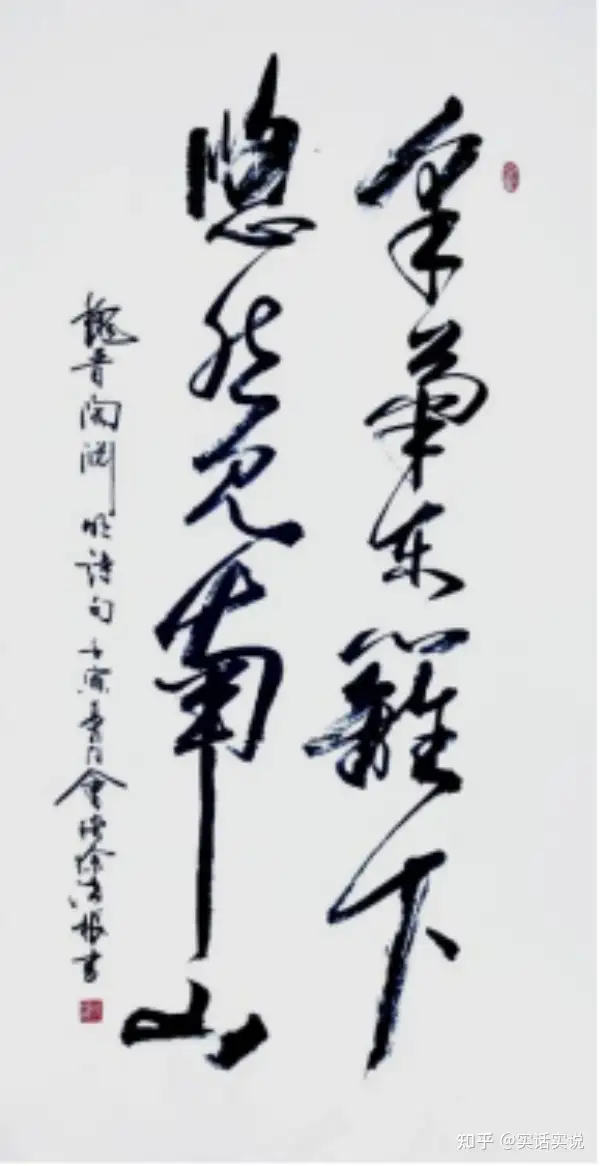 采菊东篱下
悠然见南山
魏晋陶渊明诗句 壬寅 書
知乎 @实话实说